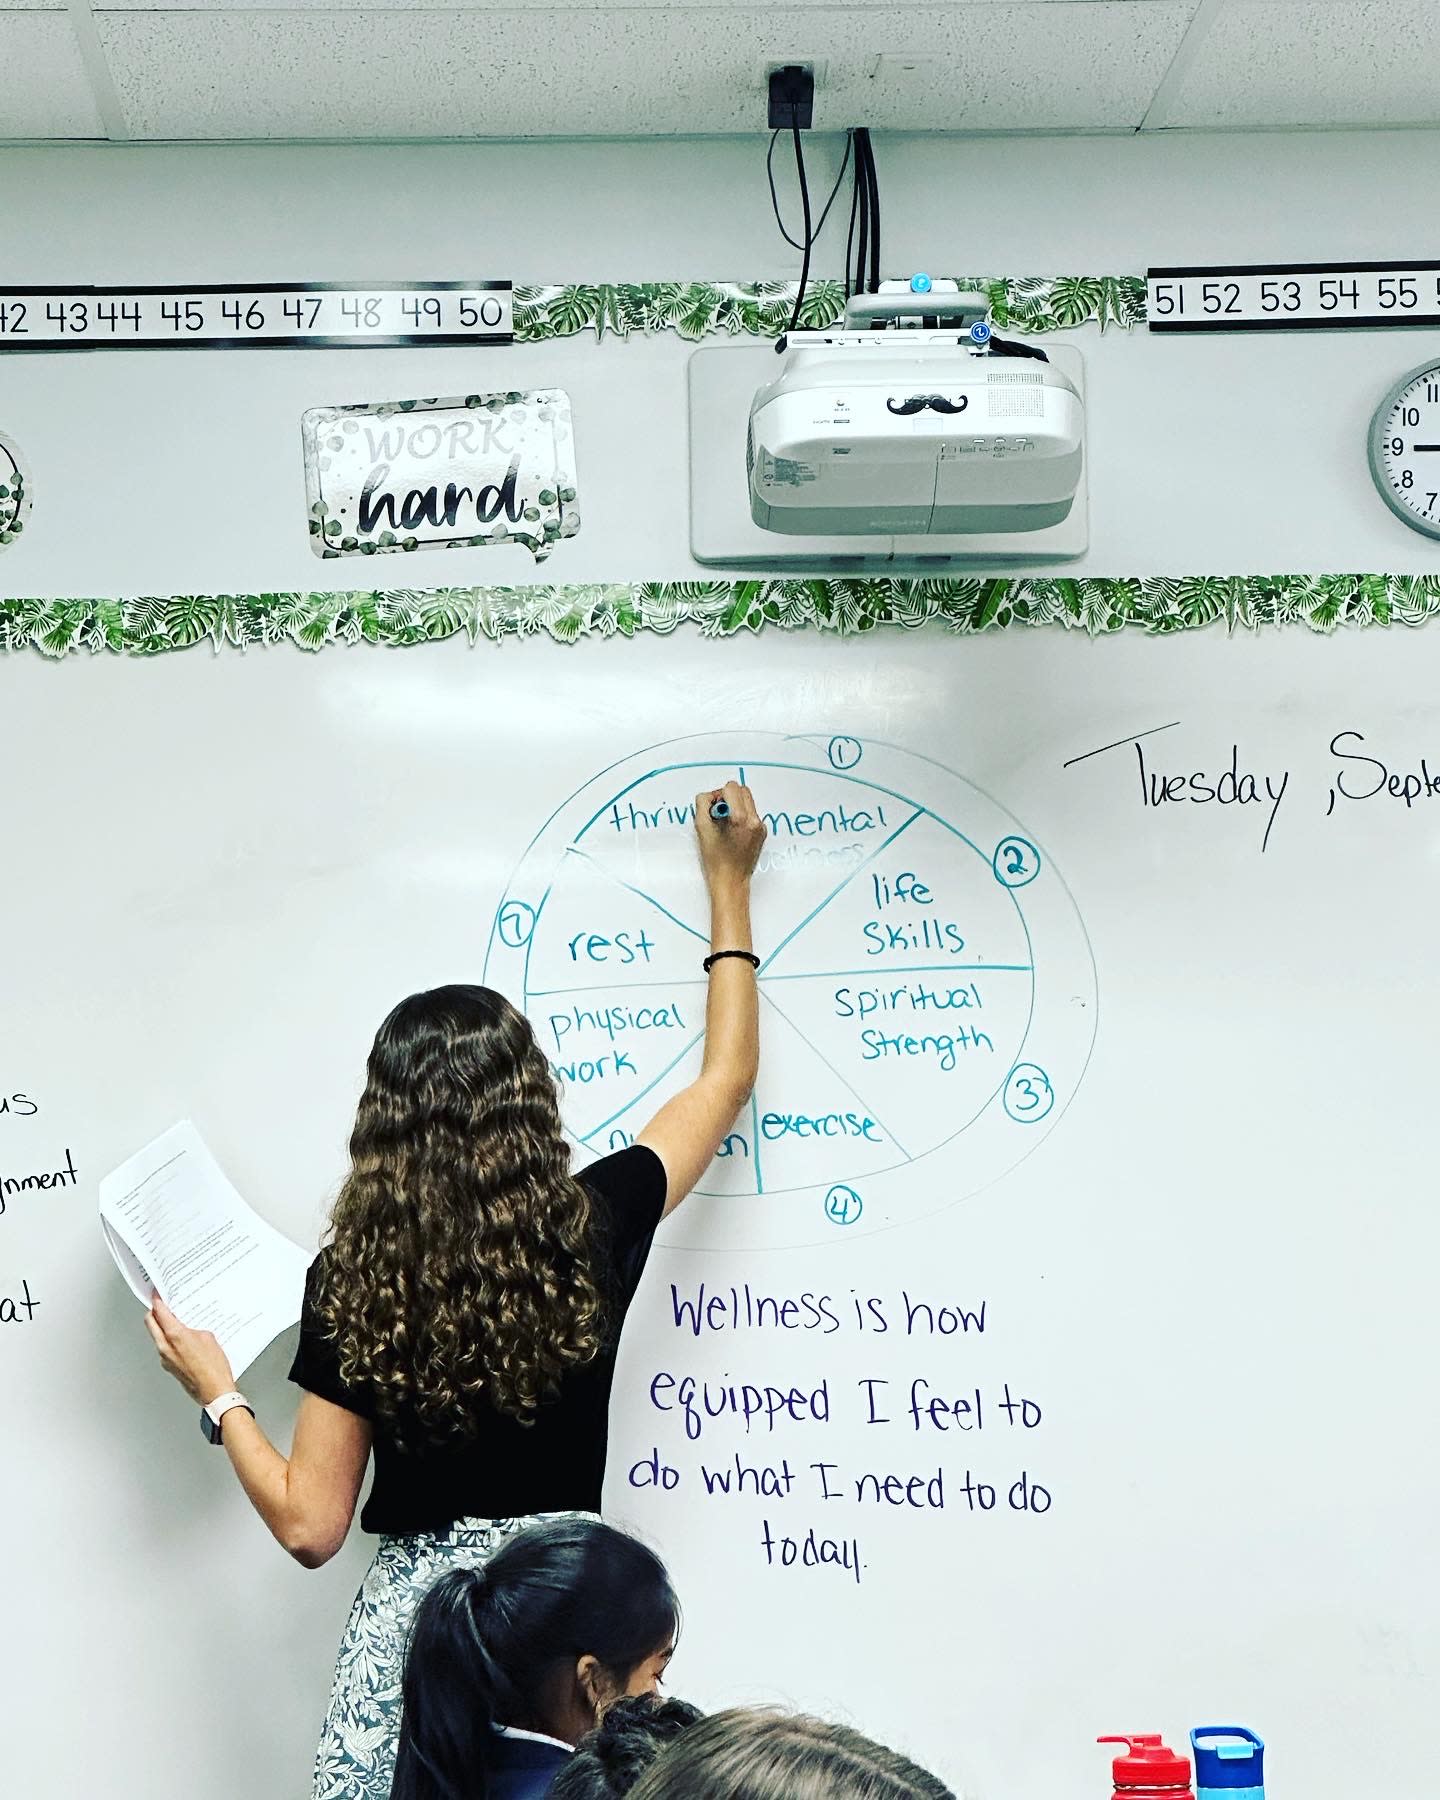 42 43 44 45 46 47 48 49 50
51 52 53 54 55
WORK
hard
11
10
9
8
7
Tuesday , Septe
1
thrivi
mental
wellness
2
life
skills
7
rest
spiritual
strength
physical
work
3
exercise
4
us
gnment
at
Wellness is how
equipped I feel to
do what I need to do
today.